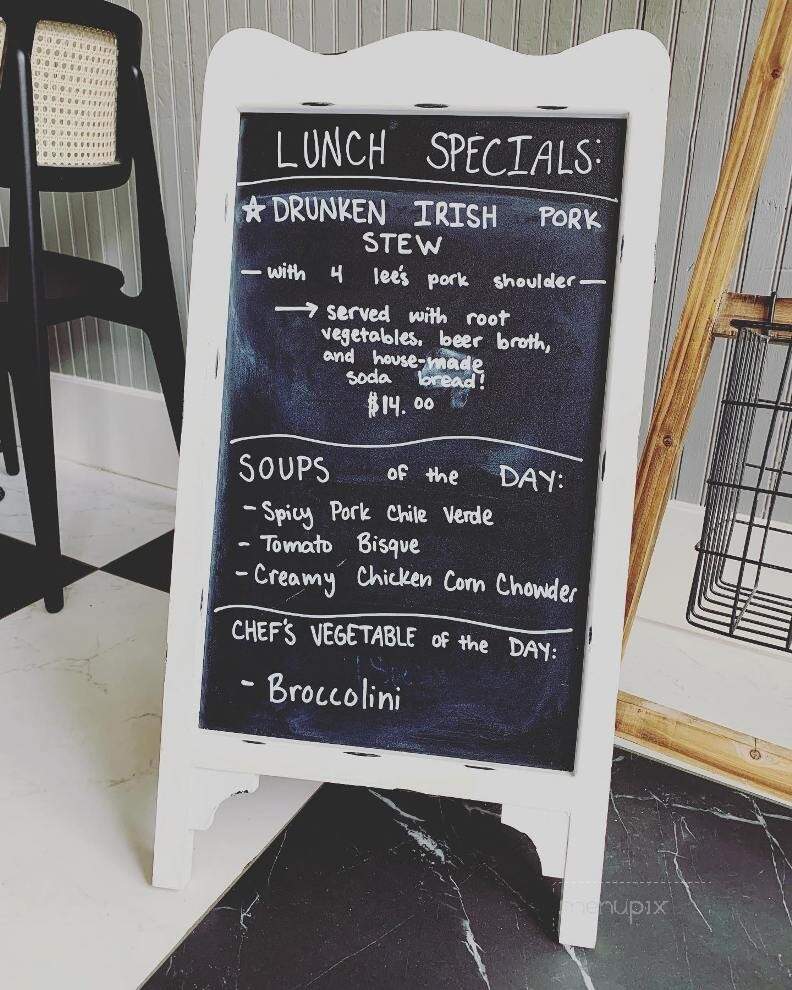 LUNCH SPECIALS:
☆ DRUNKEN IRISH PORK
STEW
— with 4 lee's pork shoulder —
→ served with root
vegetables, beer broth,
and house-made
soda bread!
$14.00
SOUPS of the DAY:
- Spicy Pork Chile Verde
- Tomato Bisque
- Creamy Chicken Corn Chowder
CHEF'S VEGETABLE of the DAY:
- Broccolini
menupix